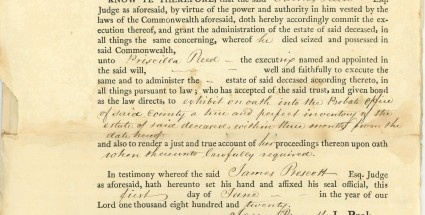 KNOW YE THEREFORE, that the said Esq.
Judge as aforesaid, by virtue of the power and authority in him vested by the
laws of the Commonwealth aforesaid, doth hereby accordingly commit the ex-
ecution thereof, and grant the administration of the estate of said deceased, in
all things the same concerning, whereof he died seized and possessed in
said Commonwealth,
unto Priscilla Reed — the executrix named and appointed in
the said will, — well and faithfully to execute the
same and to administer the — estate of said deceased according thereto, in
all things pursuant to law; who has accepted of the said trust, and given bond
as the law directs, to exhibit on oath into the Probate Office
of said County a true and perfect inventory of the
estate of said deceased, within three months from the
date hereof
and also to render a just and true account of her proceedings thereon upon oath
when thereunto lawfully required.
In testimony whereof the said James Prescott Esq. Judge
as aforesaid, hath hereunto set his hand and affixed his seal official, this
first day of June in the year of our
Lord one thousand eight hundred and twenty.